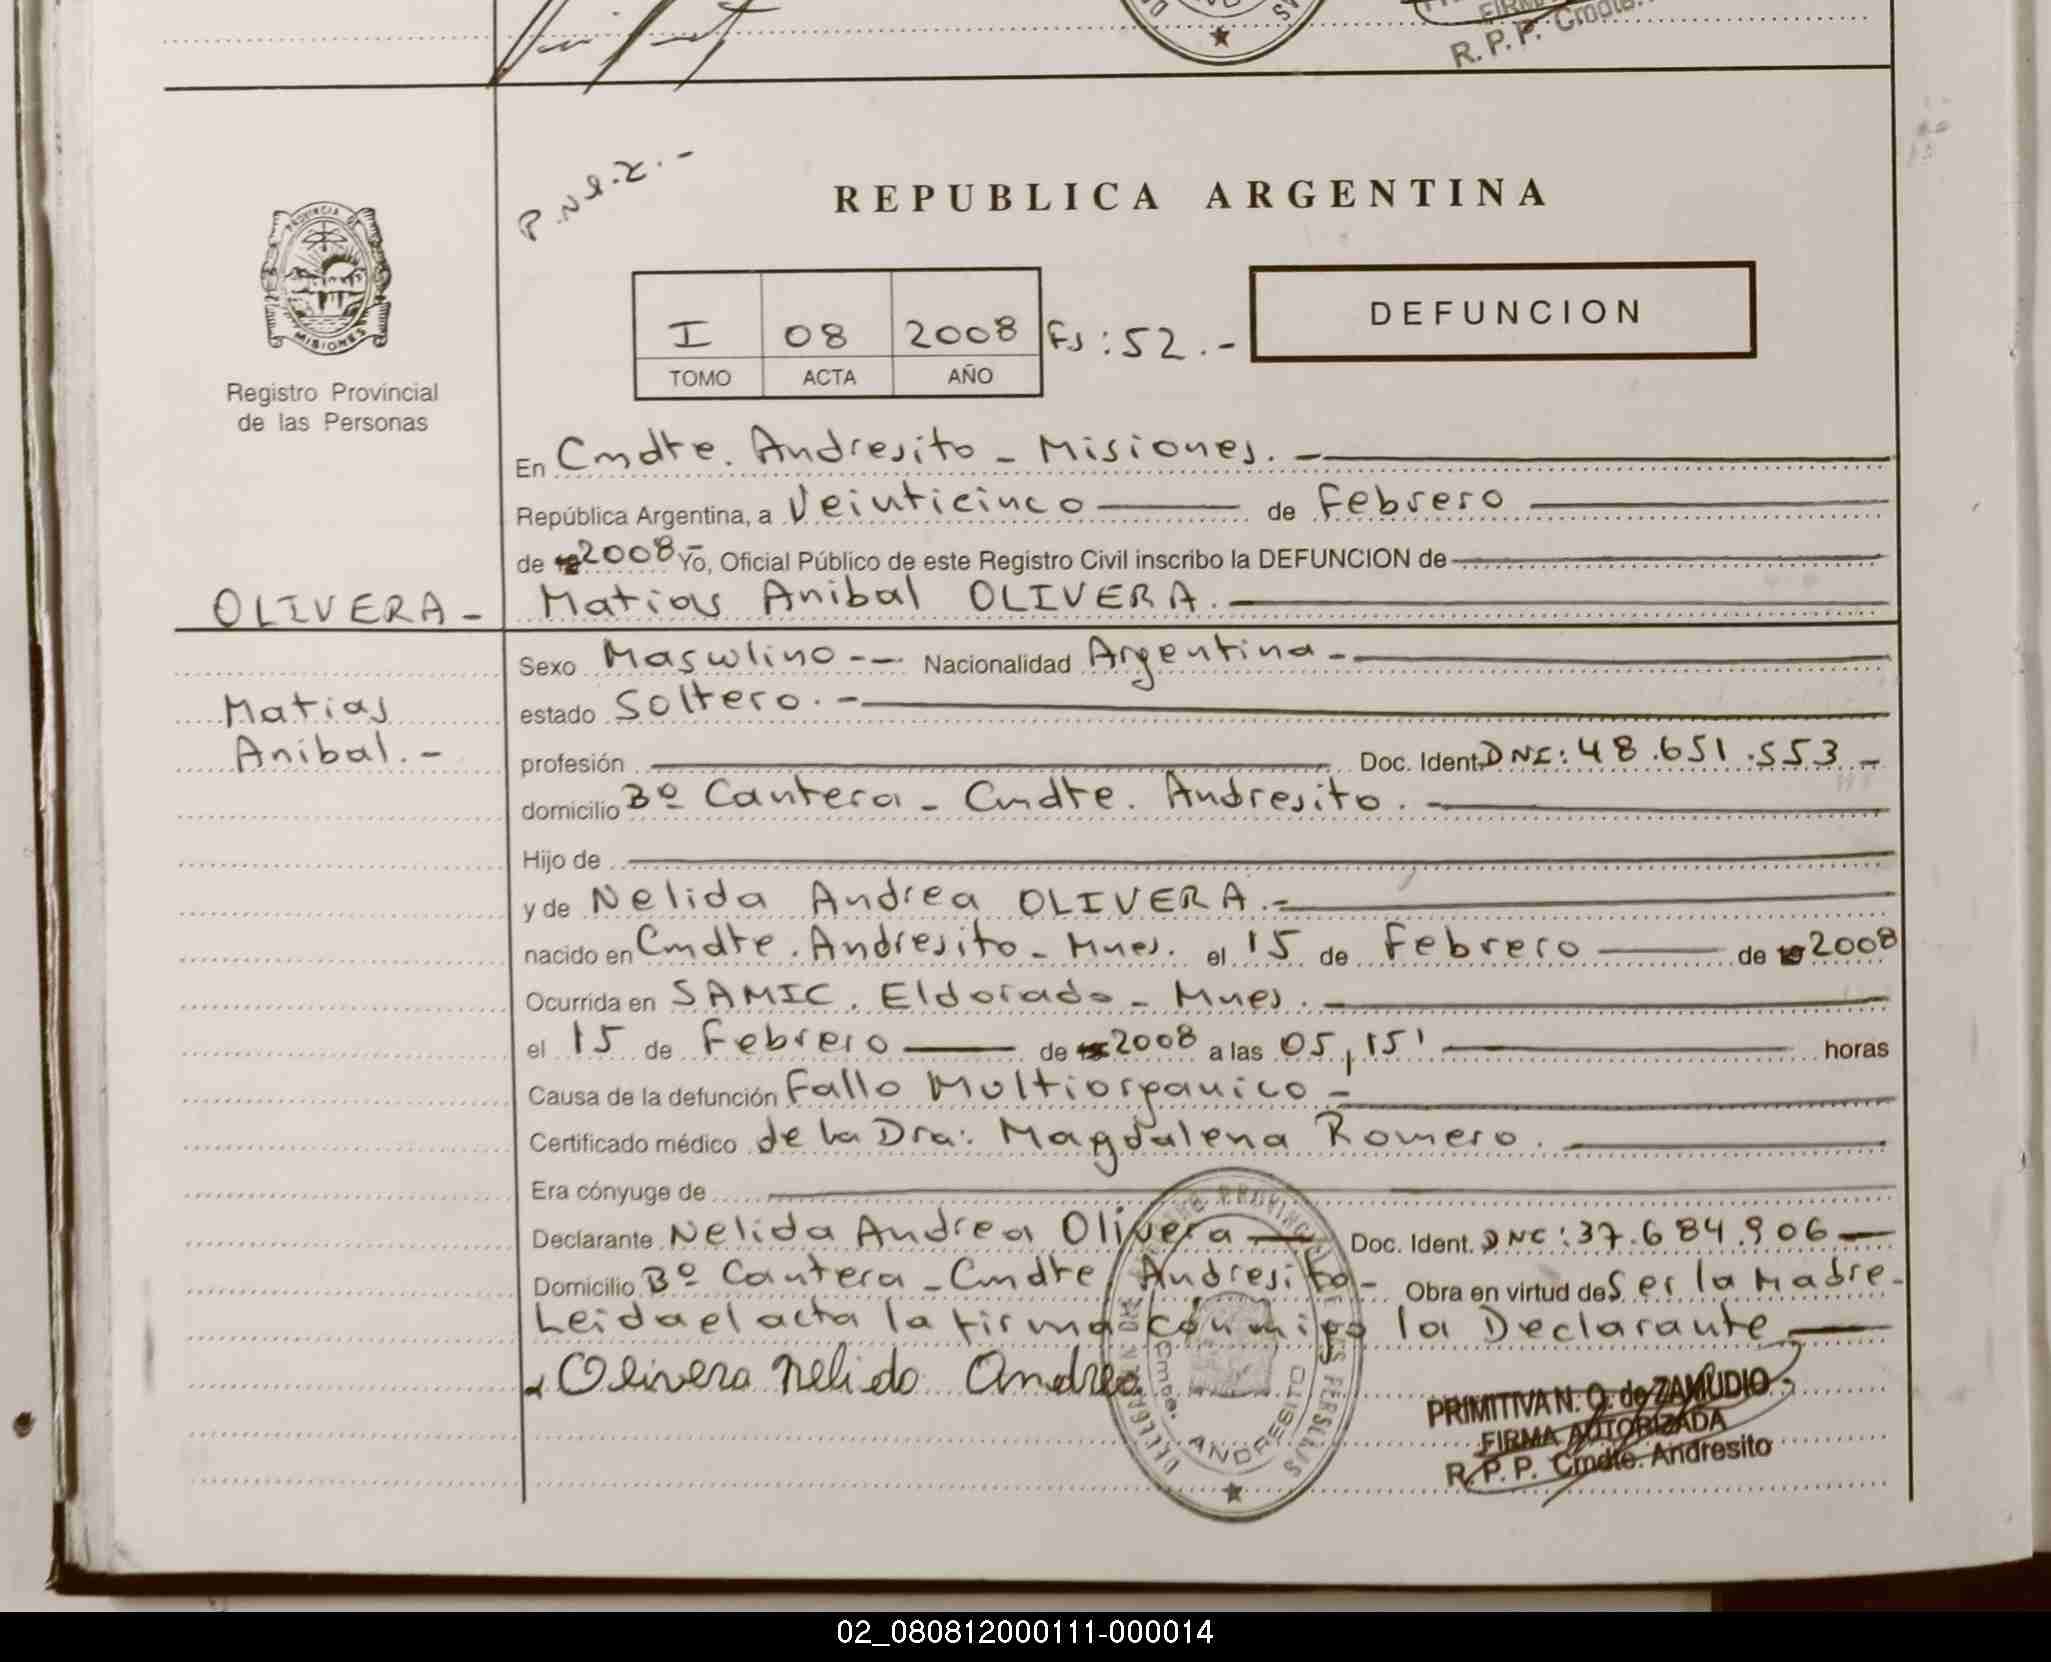 FIRMA
R. P. P. Cmdte.
P.N.I.2.-
REPUBLICA ARGENTINA
PROVINCIA DE
MISIONES
I 08 2008 Fs: 52.-
TOMO ACTA AÑO
DEFUNCION
Registro Provincial
de las Personas
En Cmdte. Andresito - Misiones. -
República Argentina, a Veinticinco de Febrero
de 2008 Yo, Oficial Público de este Registro Civil inscribo la DEFUNCION de
OLIVERA - Matias Anibal OLIVERA. -
Sexo Masculino -- Nacionalidad Argentina -
Matias estado Soltero. -
Anibal. - profesión Doc. Ident. DNI: 48.651.553 -
domicilio Bº Cantera - Cmdte. Andresito. -
Hijo de
y de Nelida Andrea OLIVERA. -
nacido en Cmdte. Andresito - Mnes. el 15 de Febrero de 2008
Ocurrida en SAMIC. Eldorado - Mnes. -
el 15 de Febrero de 2008 a las 05,15' horas
Causa de la defunción Fallo Multiorganico -
Certificado médico de la Dra: Magdalena Romero. -
Era cónyuge de
Declarante Nelida Andrea Olivera Doc. Ident. DNI: 37.684.906
Domicilio Bº Cantera - Cmdte. Andresito - Obra en virtud de Ser la Madre -
Leida el acta la firma conmigo la Declarante
Olivera Nelida Andrea
PROVINCIAL DE LAS PERSONAS
Cmdte. ANDRESITO
PRIMITIVA N. O. de ZAMUDIO
FIRMA AUTORIZADA
R. P. P. Cmdte. Andresito
02_080812000111-000014